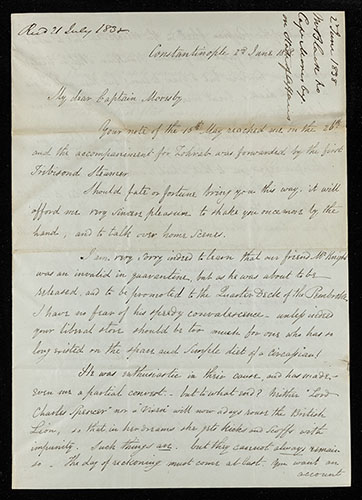 Recd 21 July 1838
2 June 1838
Constantinople 2d June
My dear Captain Moresby
Your note of the 15th May reached me on the 26th
and the accompaniment for Zohrab was forwarded by the first
Trebisond Steamer
Should fate or fortune bring you this way, it will
afford me very sincere pleasure to shake you once more by the
hand, and to talk over home scenes.
I am very, very indeed to learn that our friend Mr Knight
was an invalid in quarantine, but as he was about to be
released, and to be promoted to the Quarter Deck of the Pembroke
I have no fear of his speedy convalescence - unless indeed
your liberal store should be too much for one who has so
long existed on the spare and simple diet of a Circassian!
He was enthusiastic in their cause, and has made
even me a partial convert. - but to what end? Neither "Lord
Charles Spencer" nor a "Vixen" will now a days rouse the British
Lion, so that in her dreams she gets kicks and scoffs with
impunity. Such things are. but they cannot always remain
so. The day of reckoning must come at last. You want an
account